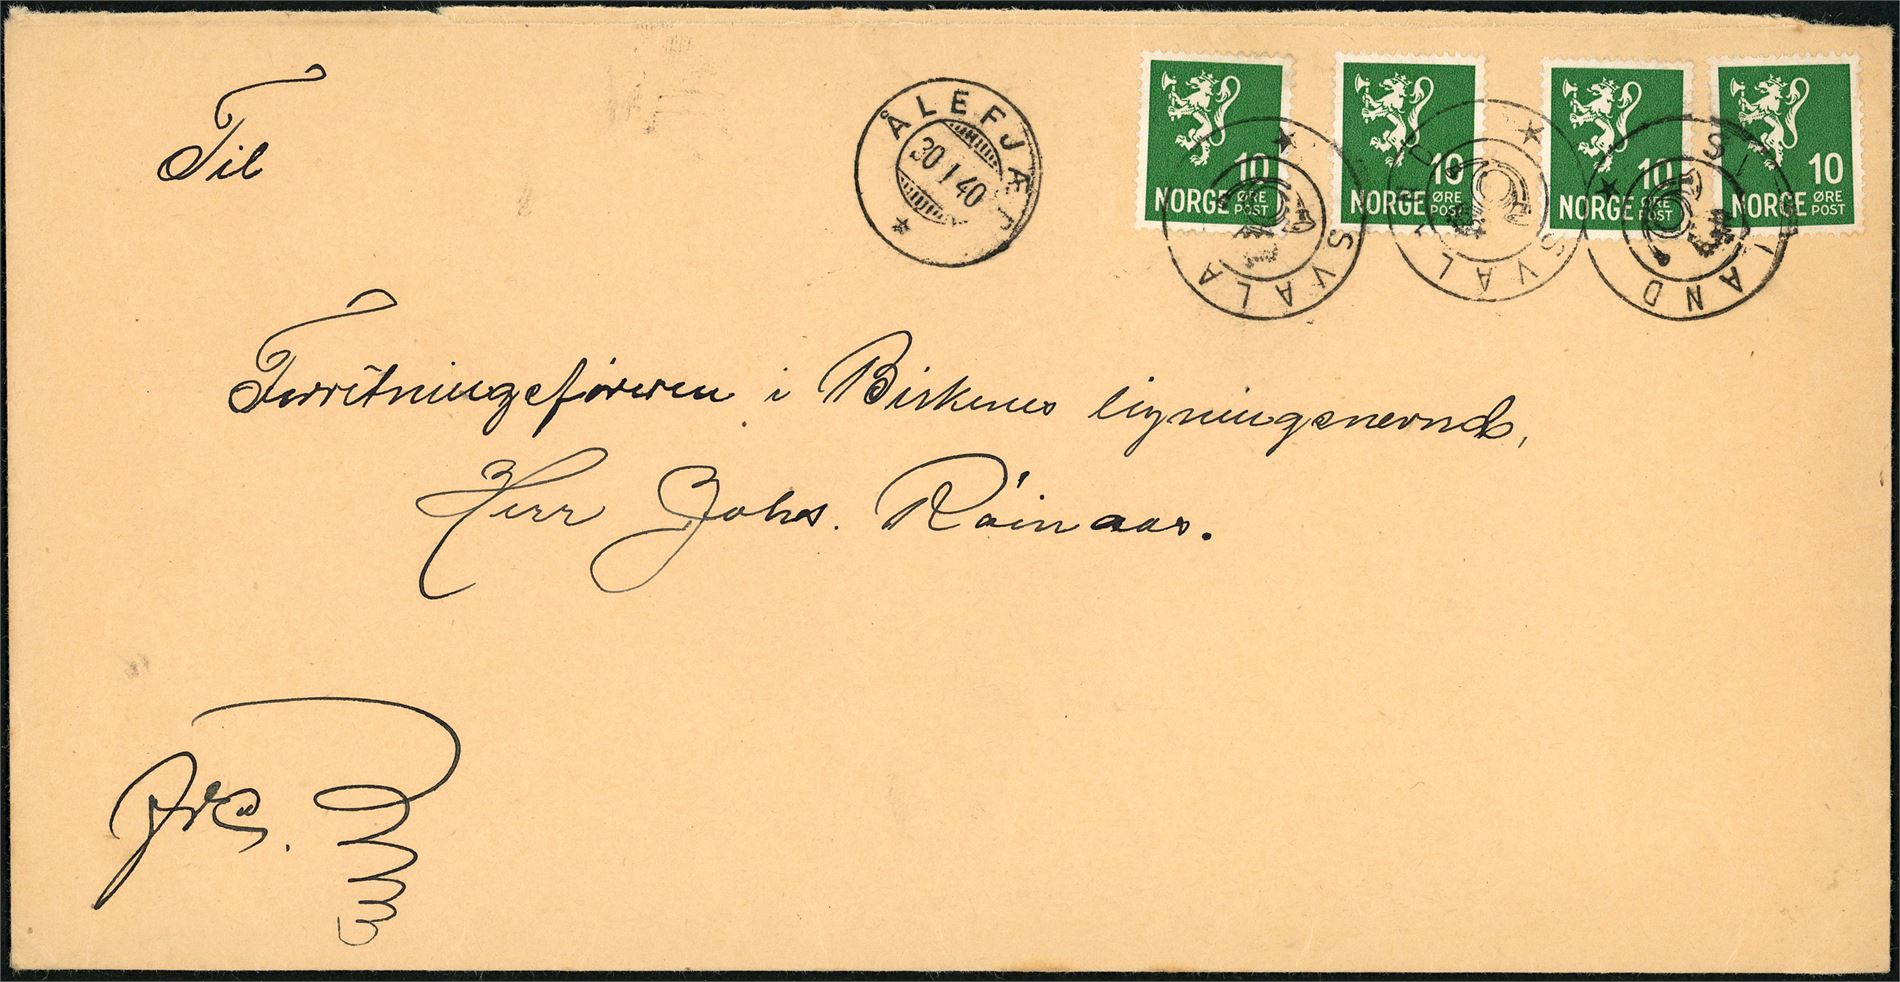 Til
ÅLEFJÆR
30 1 40
10
NORGE ØRE POST
10
NORGE ØRE POST
10
NORGE ØRE POST
10
NORGE ØRE POST
SVALAND
SVALAND
SVALAND
Forretningsføreren i Birkenes ligningsnevnd,
Herr Johs. Råinaas.